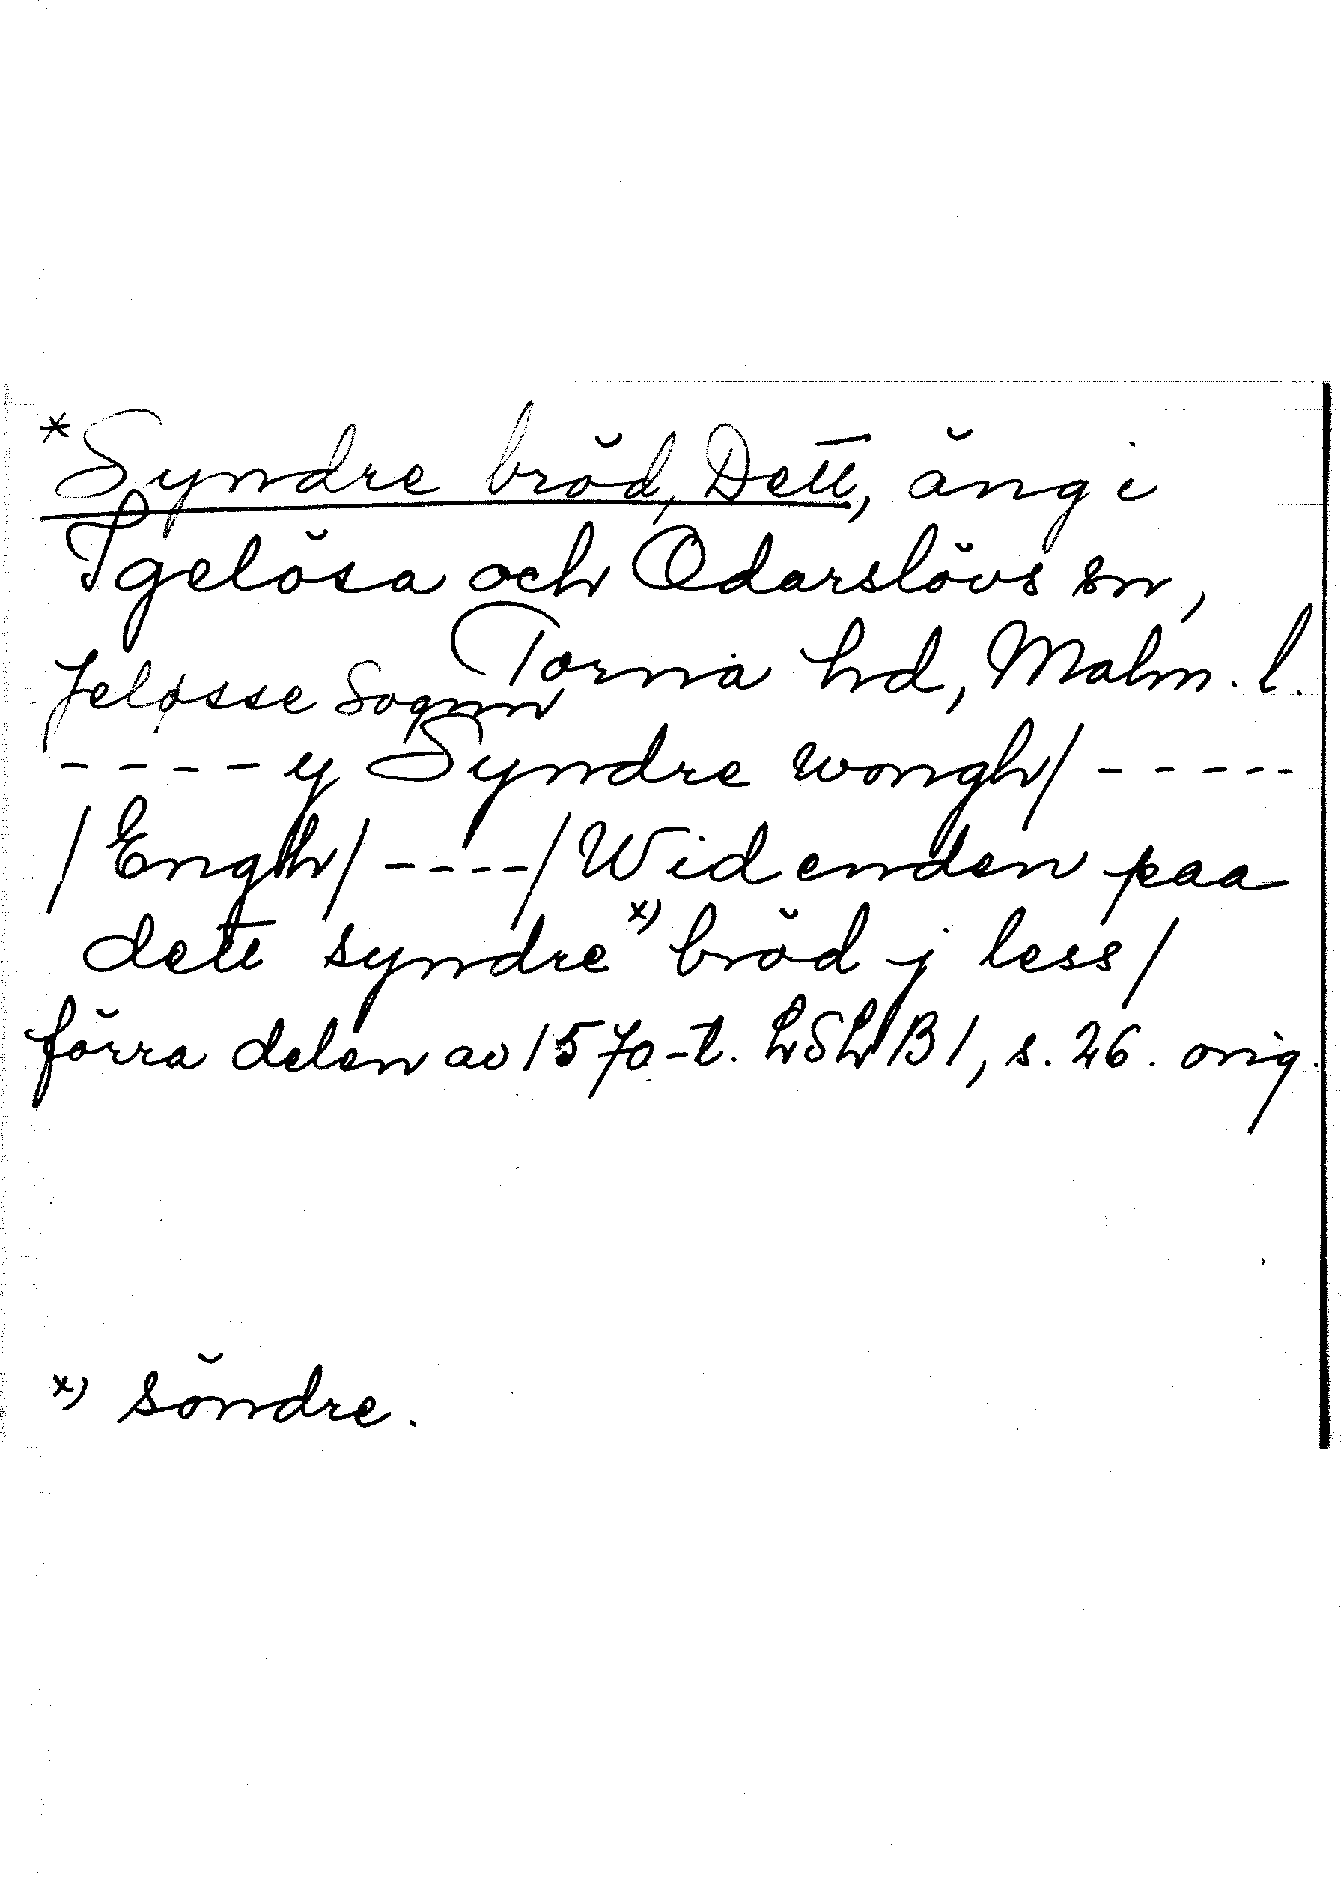 *Syndre bröd, Dett, äng i
Igelösa och Odarslövs sn,
Torna hd, Malm. l.
Jeløsse Sognn
- - - - y Syndre wongh/ - - - - -
/Engh/ - - - -/Wid enden paa
dett syndre x) bröd j less/
förra delen av 1570-t. LSLB1, s. 26. orig.
x) söndre.